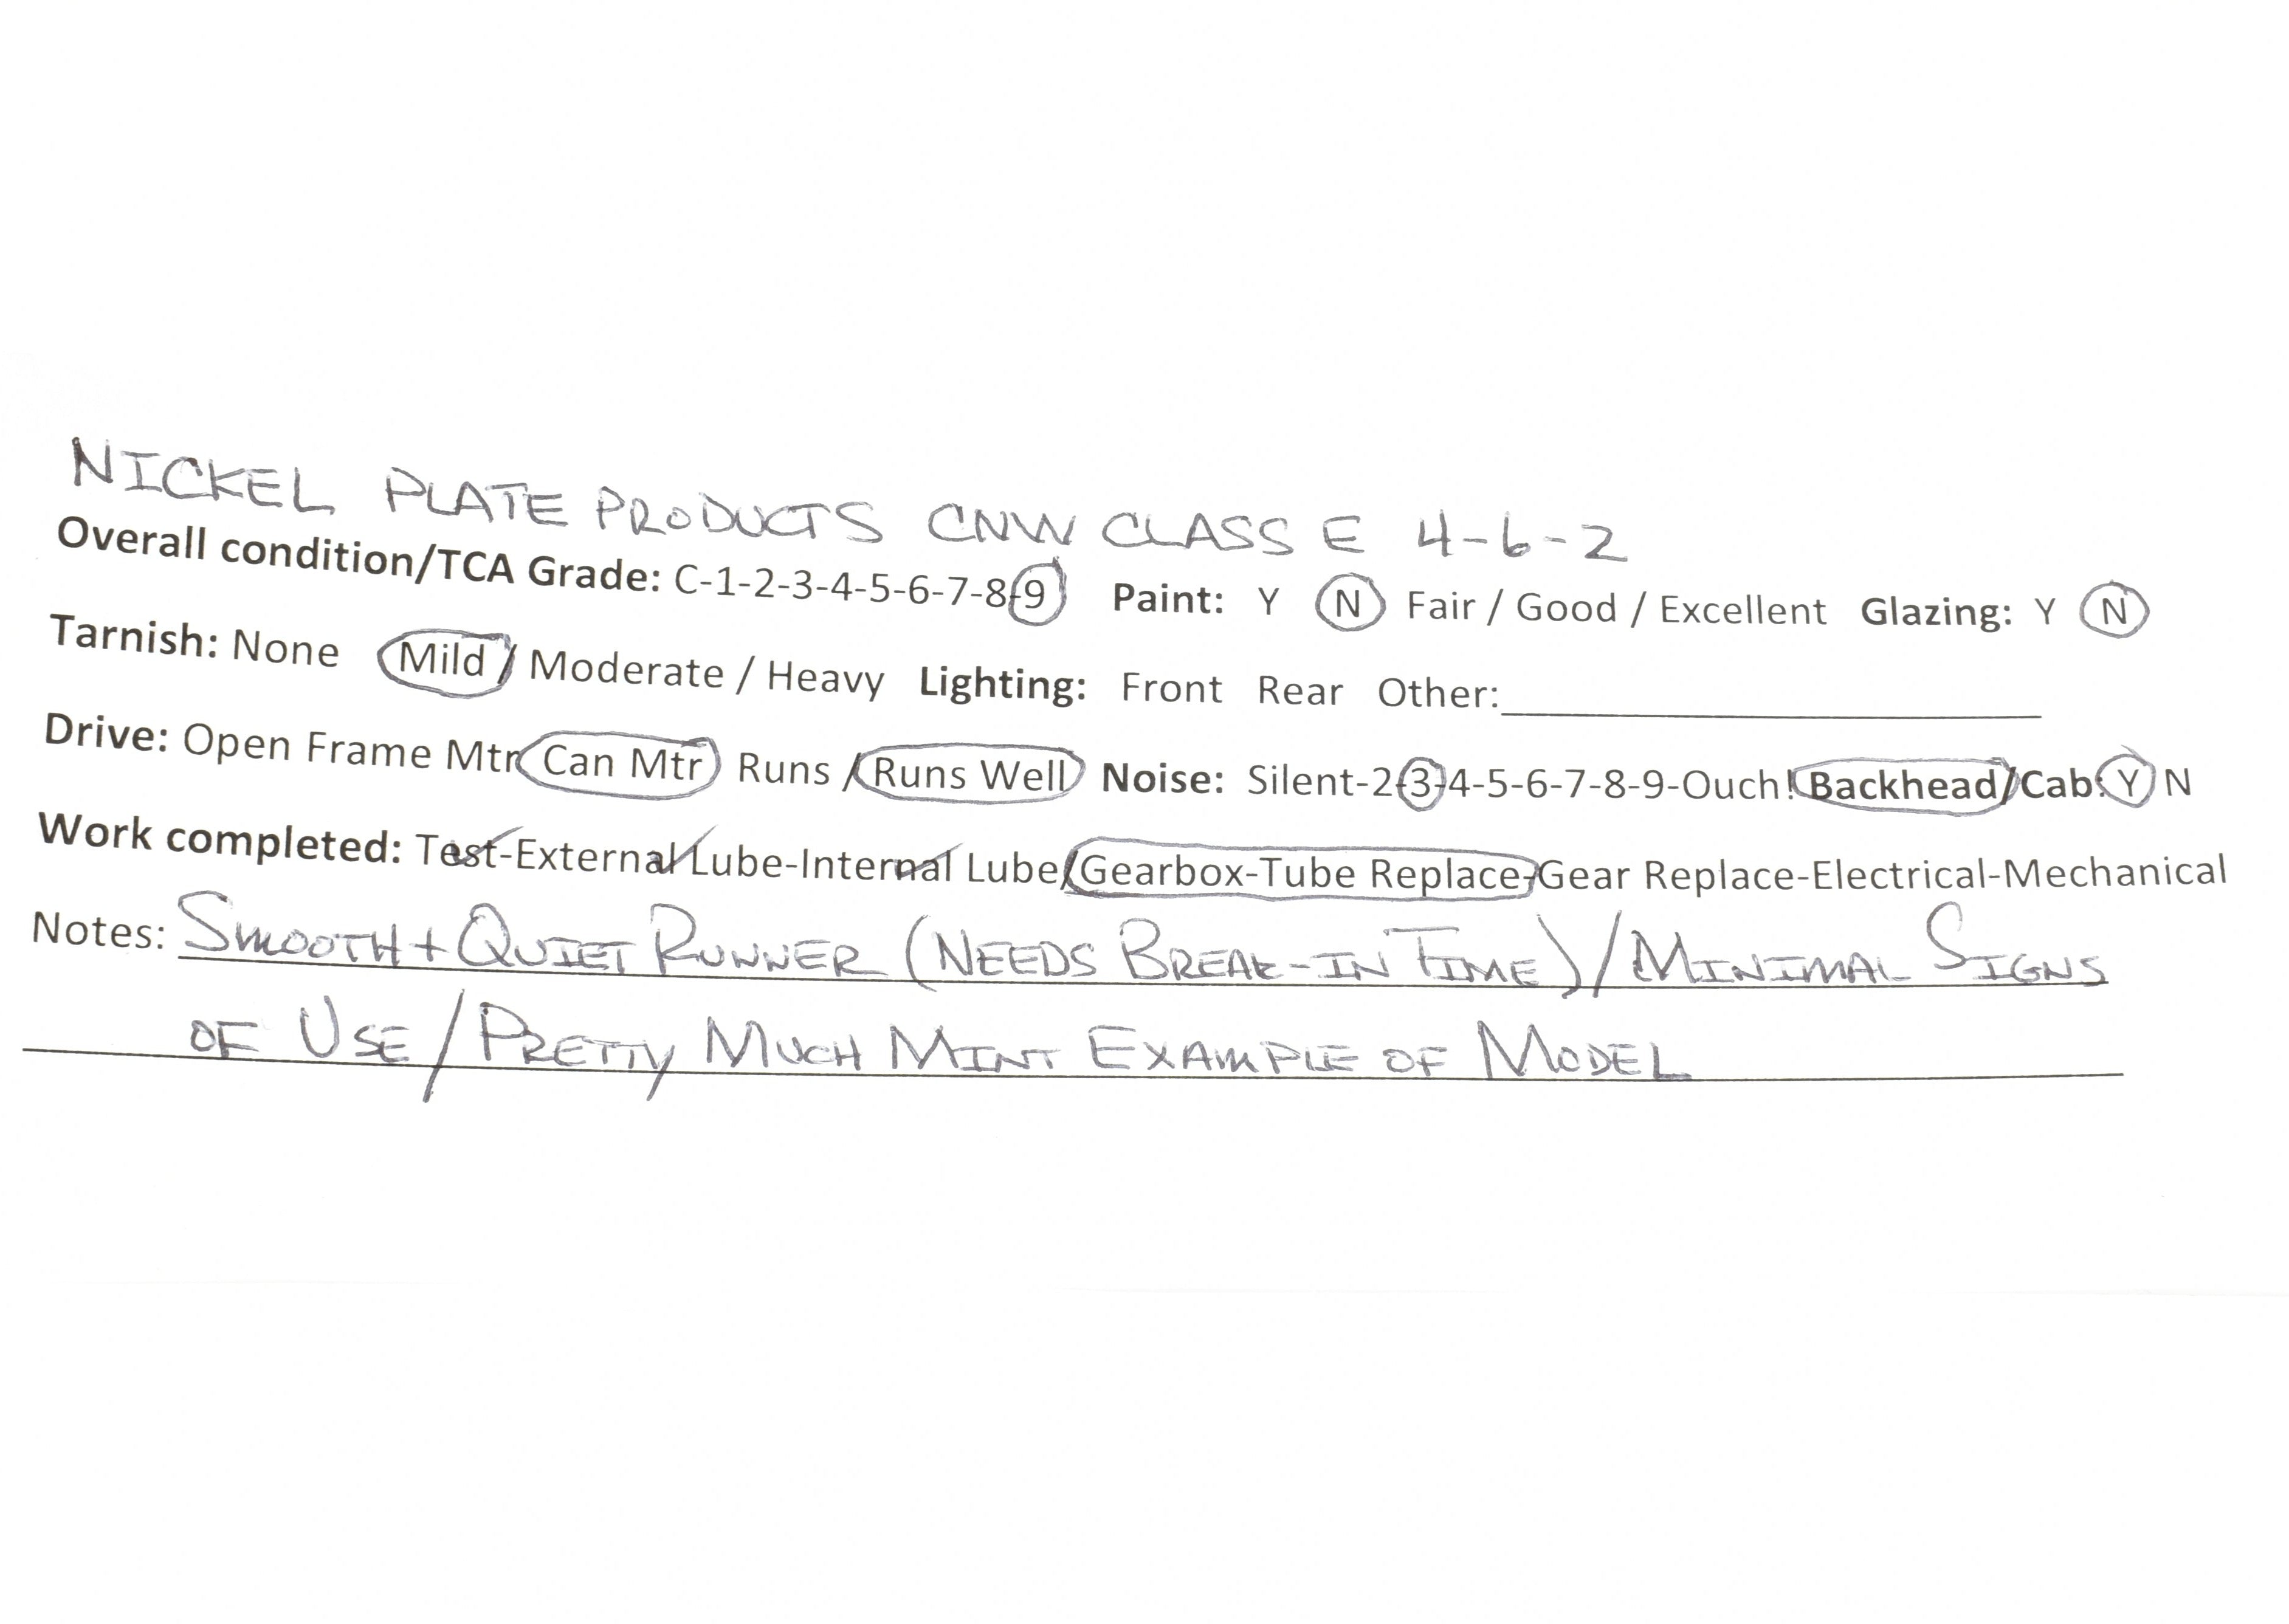 NICKEL PLATE PRODUCTS CNW CLASS E 4-6-2
Overall condition/TCA Grade: C-1-2-3-4-5-6-7-8-9 Paint: Y N Fair / Good / Excellent Glazing: Y N
Tarnish: None Mild / Moderate / Heavy Lighting: Front Rear Other:
Drive: Open Frame Mtr Can Mtr Runs / Runs Well Noise: Silent-2-3-4-5-6-7-8-9-Ouch! Backhead/Cab: Y N
Work completed: Test-External Lube-Internal Lube/Gearbox-Tube Replace-Gear Replace-Electrical-Mechanical
Notes: SMOOTH + QUIET RUNNER (NEEDS BREAK-IN TIME) / MINIMAL SIGNS
OF USE / PRETTY MUCH MINT EXAMPLE OF MODEL